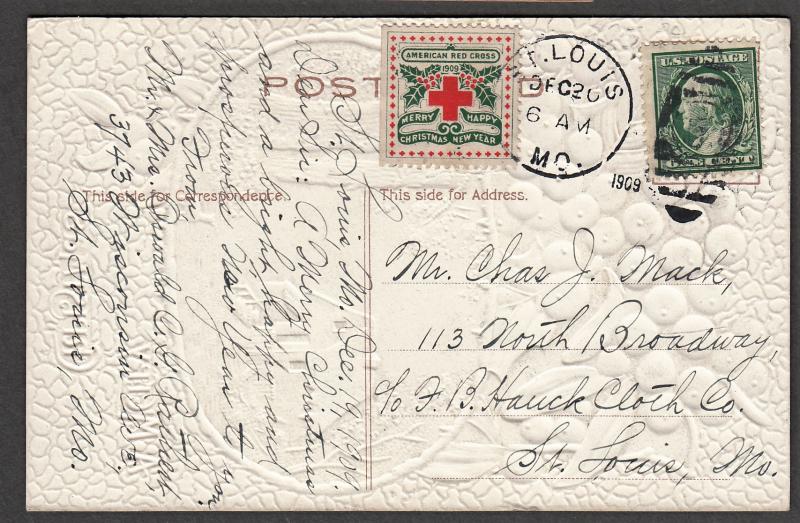 POST
AMERICAN RED CROSS
1909
MERRY HAPPY
CHRISTMAS NEW YEAR
ST. LOUIS
DEC 20
6 AM
MO.
1909
U.S. POSTAGE
ONE CENT
This side for Correspondence.
This side for Address.
St. Louis Mo. Dec. 19, 1909.
Dear Sir: A Merry Christmas
and a bright happy and
prosperous New Year to you.
From
Mr. & Mrs. Oswald C. G.
3743 Wisconsin Ave.
St. Louis, Mo.
Mr. Chas J. Mack,
113 North Broadway,
c/o F. B. Hauck Cloth Co.
St. Louis, Mo.